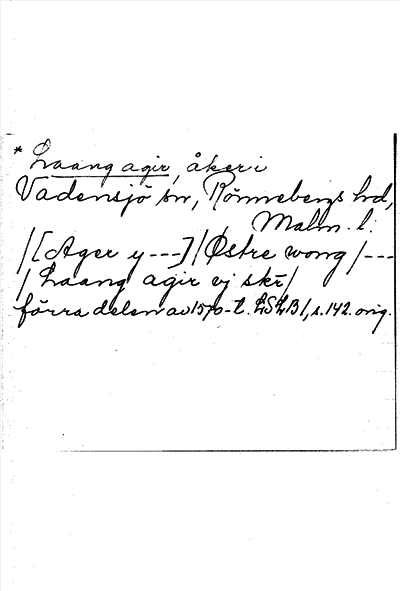 * Laang agir, åker i
Vadensjö sn, Rönnebergs hd,
Malm. l.
/[Ager y ---]/Østre wong/---
/Laang agir ej skr̄/
förra delen av 1570-t. LSLB1, s. 142. orig.